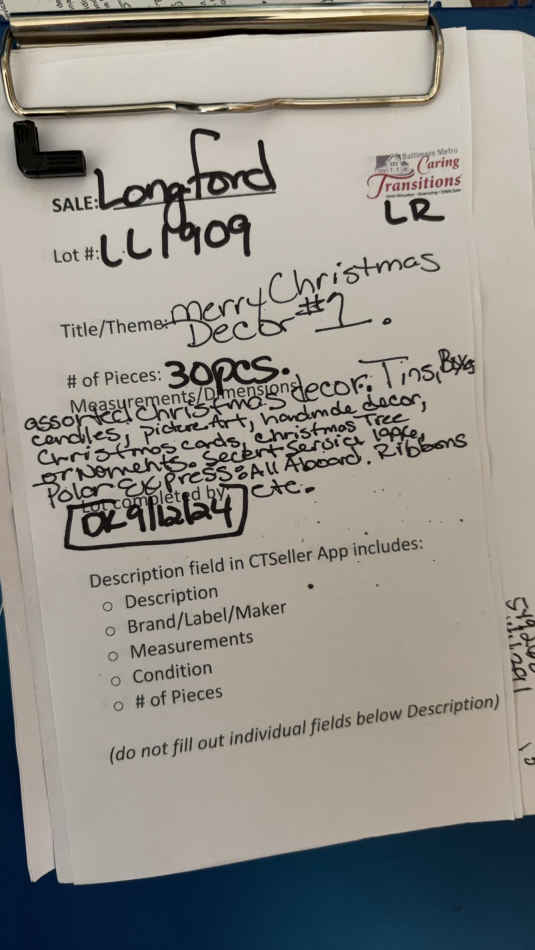 Baltimore Metro
Caring
Transitions
LR
SALE: Longford
Lot #: LL1909
Title/Theme: Merry Christmas
Decor #1.
# of Pieces: 30pcs.
Measurements/Dimensions
assorted christmas decor. Tins, Boxes
candles, picture Art, handmde decor,
Christmas cards, christmas Tree
ornoments. Secert Service
Polar EXPRESS: All Aboard. Ribbons
Lot completed by etc.
DK 9/12/24
Description field in CTSeller App includes:
o Description
o Brand/Label/Maker
o Measurements
o Condition
o # of Pieces
(do not fill out individual fields below Description)